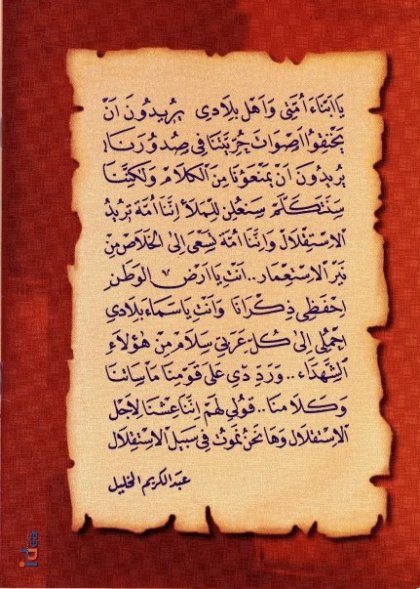 يَا أَبْنَاءَ أُمَّتِي وَأَهْلَ بِلَادِي يُرِيدُونَ أَنْ
يَخْنِقُوا أَصْوَاتَ حُرِّيَّتِنَا فِي صُدُورِنَا!
يُرِيدُونَ أَنْ يَمْنَعُونَا مِنَ الْكَلَامِ وَلَكِنَّنَا
سَنَتَكَلَّمُ سَنُعْلِنُ لِلْمَلَأِ إِنَّنَا أُمَّةٌ تُرِيدُ
الاِسْتِقْلَالَ وَإِنَّنَا أُمَّةٌ تَسْعَى إِلَى الْخَلَاصِ مِنْ
نَيْرِ الاِسْتِعْمَارِ.. أَنْتِ يَا أَرْضَ الْوَطَنِ
اِحْفَظِي ذِكْرَانَا وَأَنْتِ يَا سَمَاءَ بِلَادِي
اِحْمِلِي إِلَى كُلِّ عَرَبِيٍّ سَلَامَ مِنْ هَؤُلَاءِ
الشُّهَدَاءِ.. وَرَدِّدِي عَلَى قَوْمِنَا مَأْسَاتَنَا
وَكَلَامَنَا.. قُولِي لَهُمْ إِنَّنَا عِشْنَا لِأَجْلِ
الاِسْتِقْلَالِ وَهَا نَحْنُ نَمُوتُ فِي سَبِيلِ الاِسْتِقْلَالِ
عبد الكريم الخليل
idea